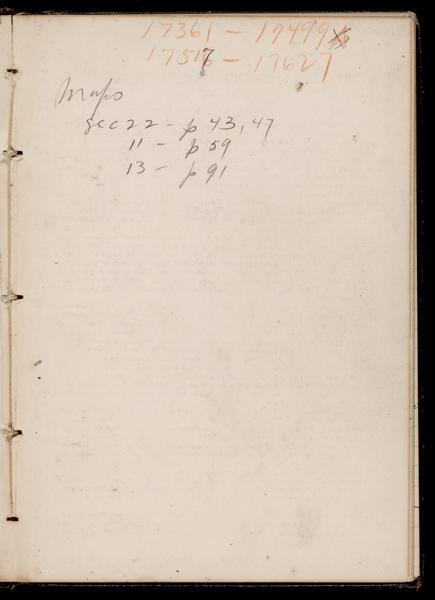 17361 - 17499
17517 - 17627
Maps
Sec 22 - p 43, 47
11 - p 59
13 - p 91